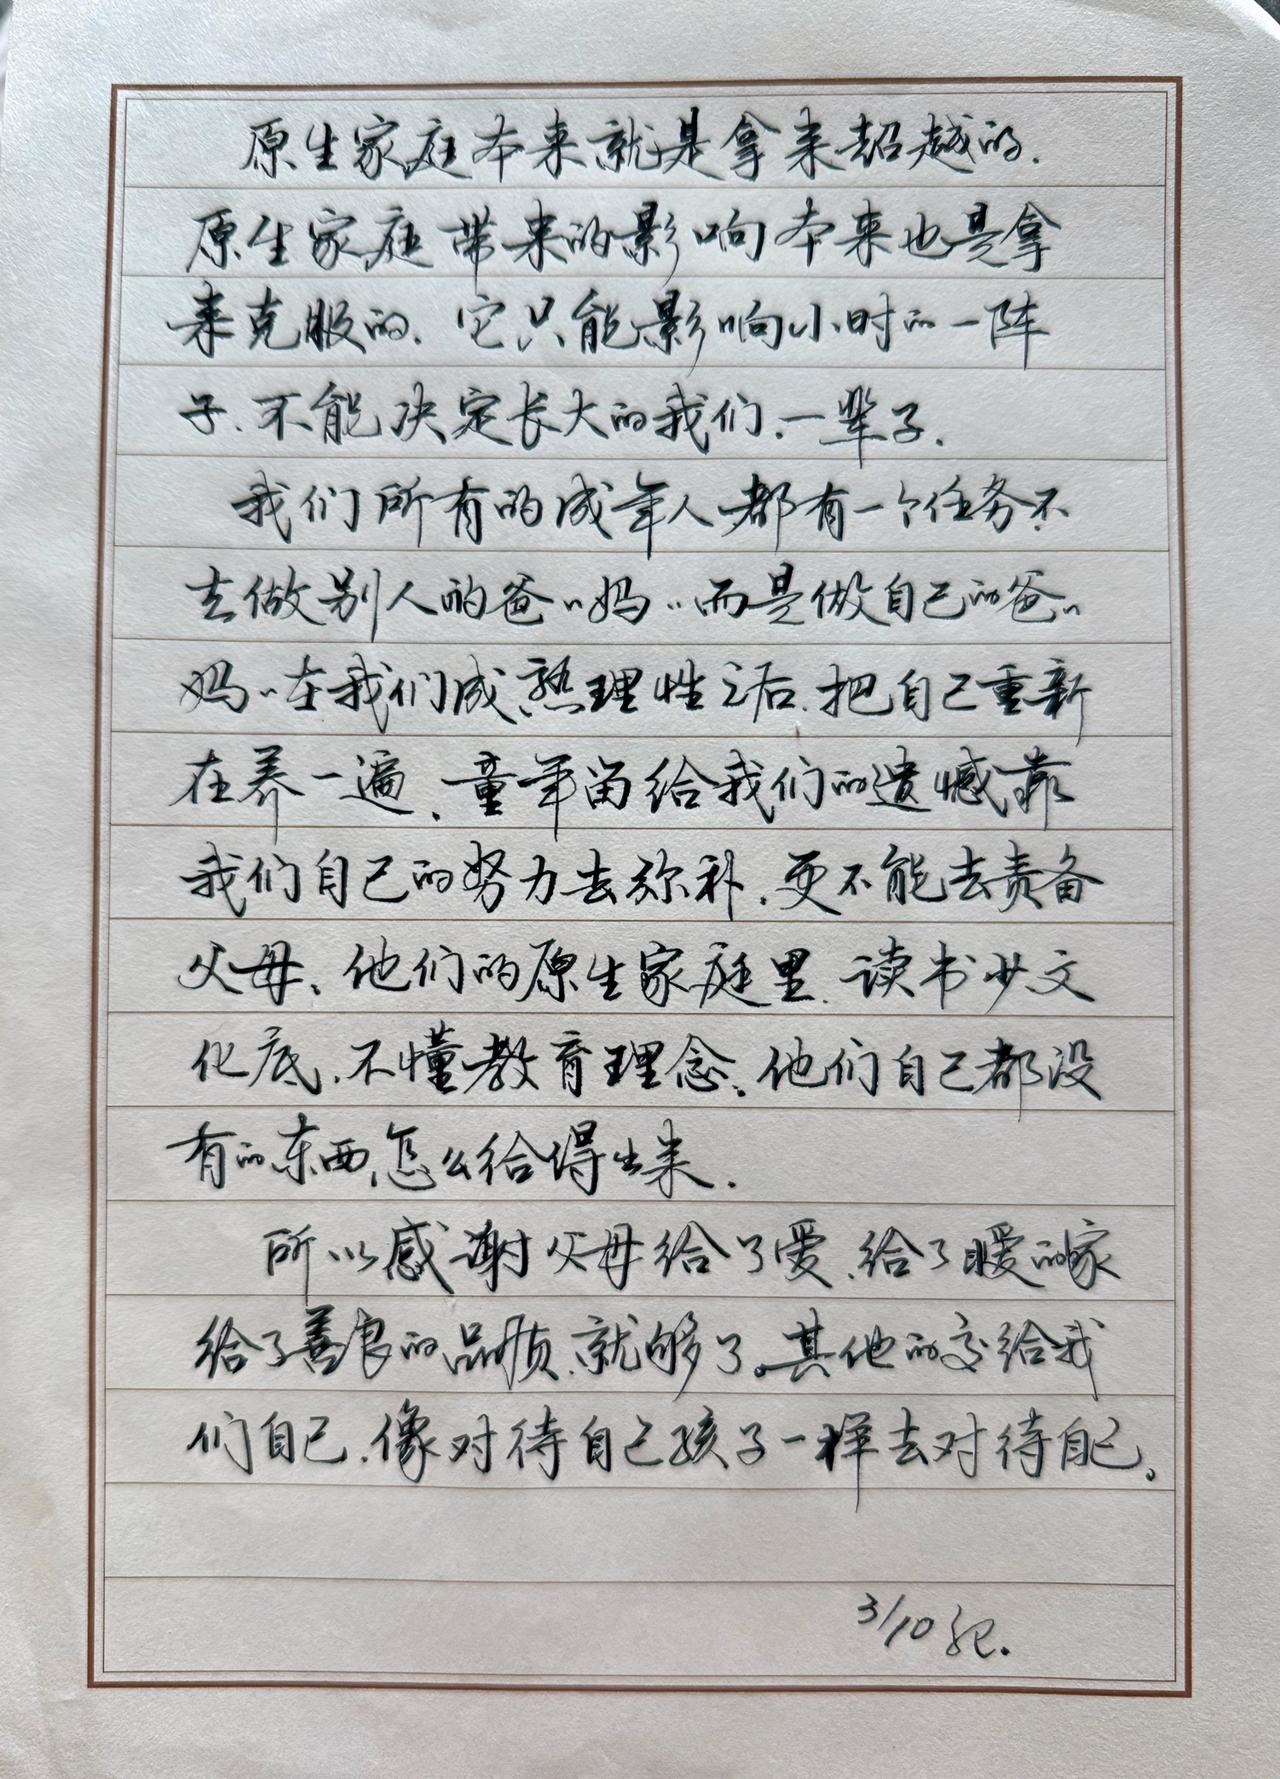 原生家庭本来就是拿来超越的.
原生家庭带来的影响本来也是拿
来克服的.它只能影响小时的一阵
子.不能决定长大的我们.一辈子.
我们所有的成年人,都有一个任务不
去做别人的爸〃妈〃而是做自己的爸〃
妈〃在我们成熟理性之后.把自己重新
在养一遍、童年留给我们的遗憾靠
我们自己的努力去弥补.更不能去责备
父母、他们的原生家庭里.读书少文
化底.不懂教育理念、他们自己都没
有的东西,怎么给得出来.
所以感谢父母给了爱.给了暖的家
给了善良的品质.就够了。其他的交给我
们自己.像对待自己孩子一样去对待自己。
3/10记.